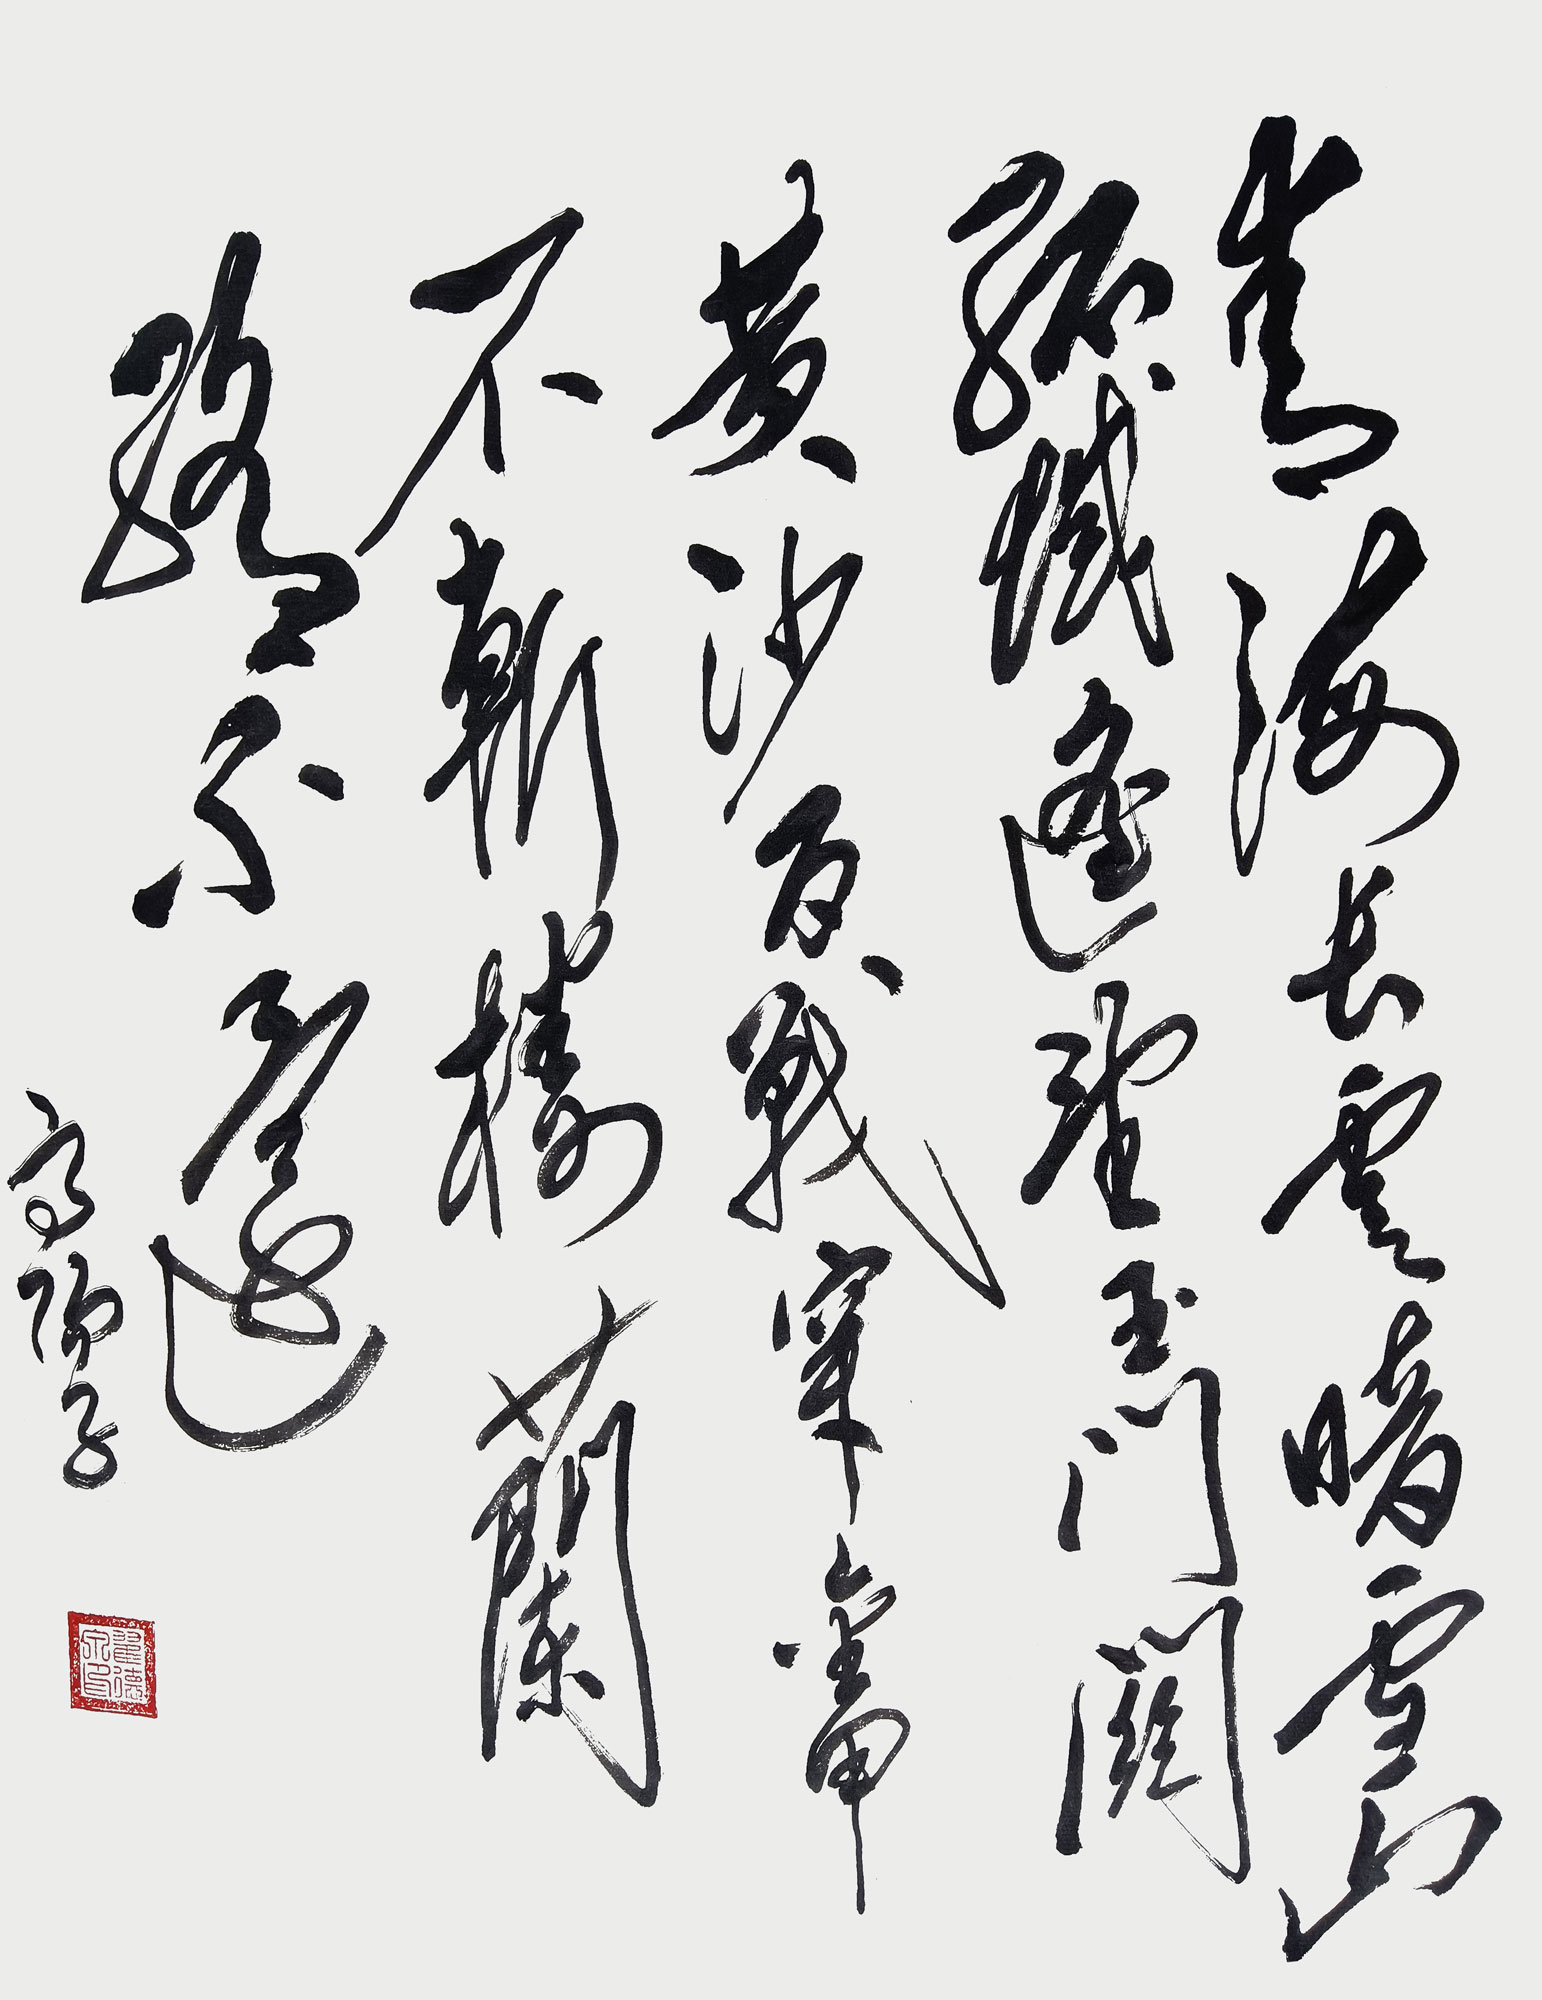 青海長雲暗雪山
孤城遙望玉門關
黃沙百戰穿金甲
不斬樓蘭
終不還
高陽子